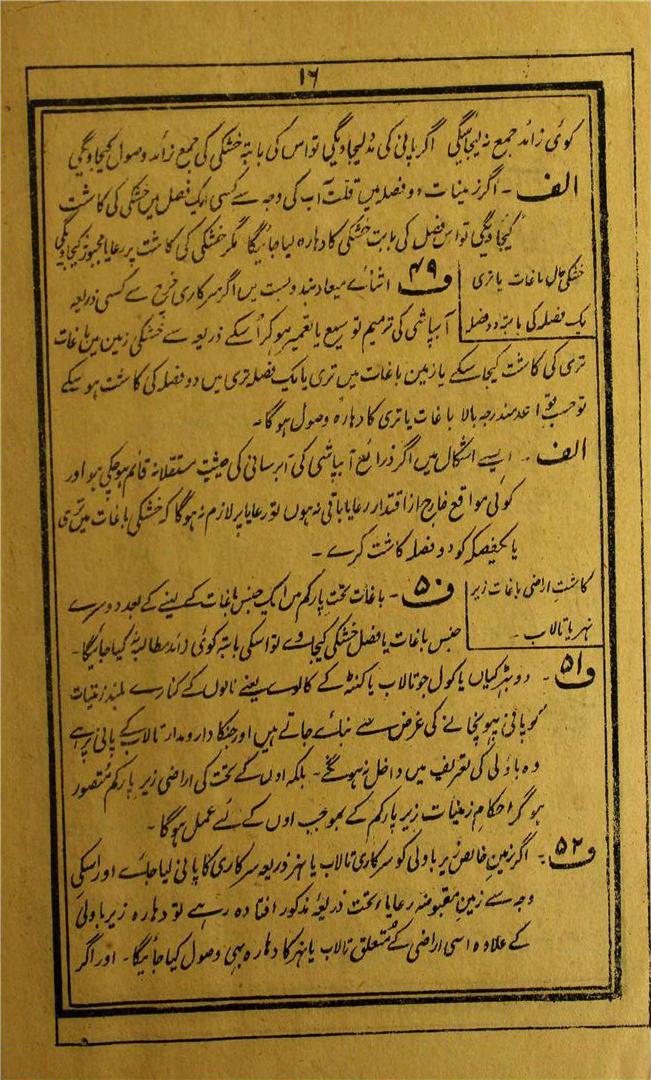 ۱۶
کوئی زائد جمع نہ لیجائیگی اگر پانی کی مدد لیجاویگی تو اس کی بابتہ خشکی کی جمع زائد وصول کیجاویگی
الف ۔ اگر زمینات دو فصلہ میں قلّت آب کی وجہ سے کسی ایک فصل میں خشکی کی کاشت
کیجاویگی تو اس فصل کی بابت خشکی کا دہارہ لیا جائیگا مگر خشکی کی کاشت پر رعایا مجبور نہ کیجاویگی
خشکی حال باغات یا تری
یک فصلہ کی بابتہ دو فصلہ
ف ۴۹ اثنائے میعاد بندوبست میں اگر سرکاری خرچ سے کسی ذریعہ
آبپاشی کی ترمیم توسیع یا تعمیر ہو کر اُسکے ذریعہ سے خشکی زمین میں باغات
تری کی کاشت کیجا سکے یا زمین باغات میں تری یا یک فصلہ تری میں دو فصلہ کی کاشت ہو سکے
تو حسب قواعد مندرجہ بالا باغات یا تری کا دہارہ وصول ہو گا ۔
الف ۔ ایسے اشکال میں اگر ذرائع آبپاشی کی آبرسانی کی حیثیت مستقلانہ قائم ہو چکی ہو اور
کوئی مواقع خارج از اقتدار رعایا باقی نہ ہوں تو رعایا پر لازم نہ ہوگا کہ خشکی باغات میں تری
یا یکفصلہ کو دو فصلہ کاشت کرے ۔
کاشت اراضی باغات زیر
نہر یا تالاب ۔
ف ۵۰ ۔ باغات تحت پارکم میں ایک جنس باغات کے لینے کے بعد دوسرے
جنس باغات یا فصل خشکی کیجاوے تو اسکی بابتہ کوئی زائد مطالبہ نہ کیا جائیگا ۔
ف ۵۱ ۔ دو ہڑکیاں یا کول جو تالاب یا کنٹہ کے کالوے یعنے نالوں کے کنارے بلند زمینات
کو پانی پہونچانے کی غرض سے بنائے جاتے ہیں اور جنکا دارومدار تالاب کے پانی پر ہے
وہ باولی کی تعریف میں داخل نہ ہونگے ۔ بلکہ اونکے تحت کی اراضی زیر پارکم متصور
ہو گر احکام زمینات زیر پارکم کے بموجب اوں کے لئے عمل ہو گا ۔
ف ۵۲ ۔ اگر زمین خالص زیر باولی کو سرکاری تالاب یا نہر ذریعہ سرکاری کا پانی لیا جائے اور اسکی
وجہ سے زمین مقبوضہ رعایا تحت ذریعہ مذکور افتادہ رہے تو دہارہ زیر باولی
کے علاوہ اسی اراضی کے متعلق تالاب یا نہر کا دہارہ بہی وصول کیا جائیگا ۔ اور اگر